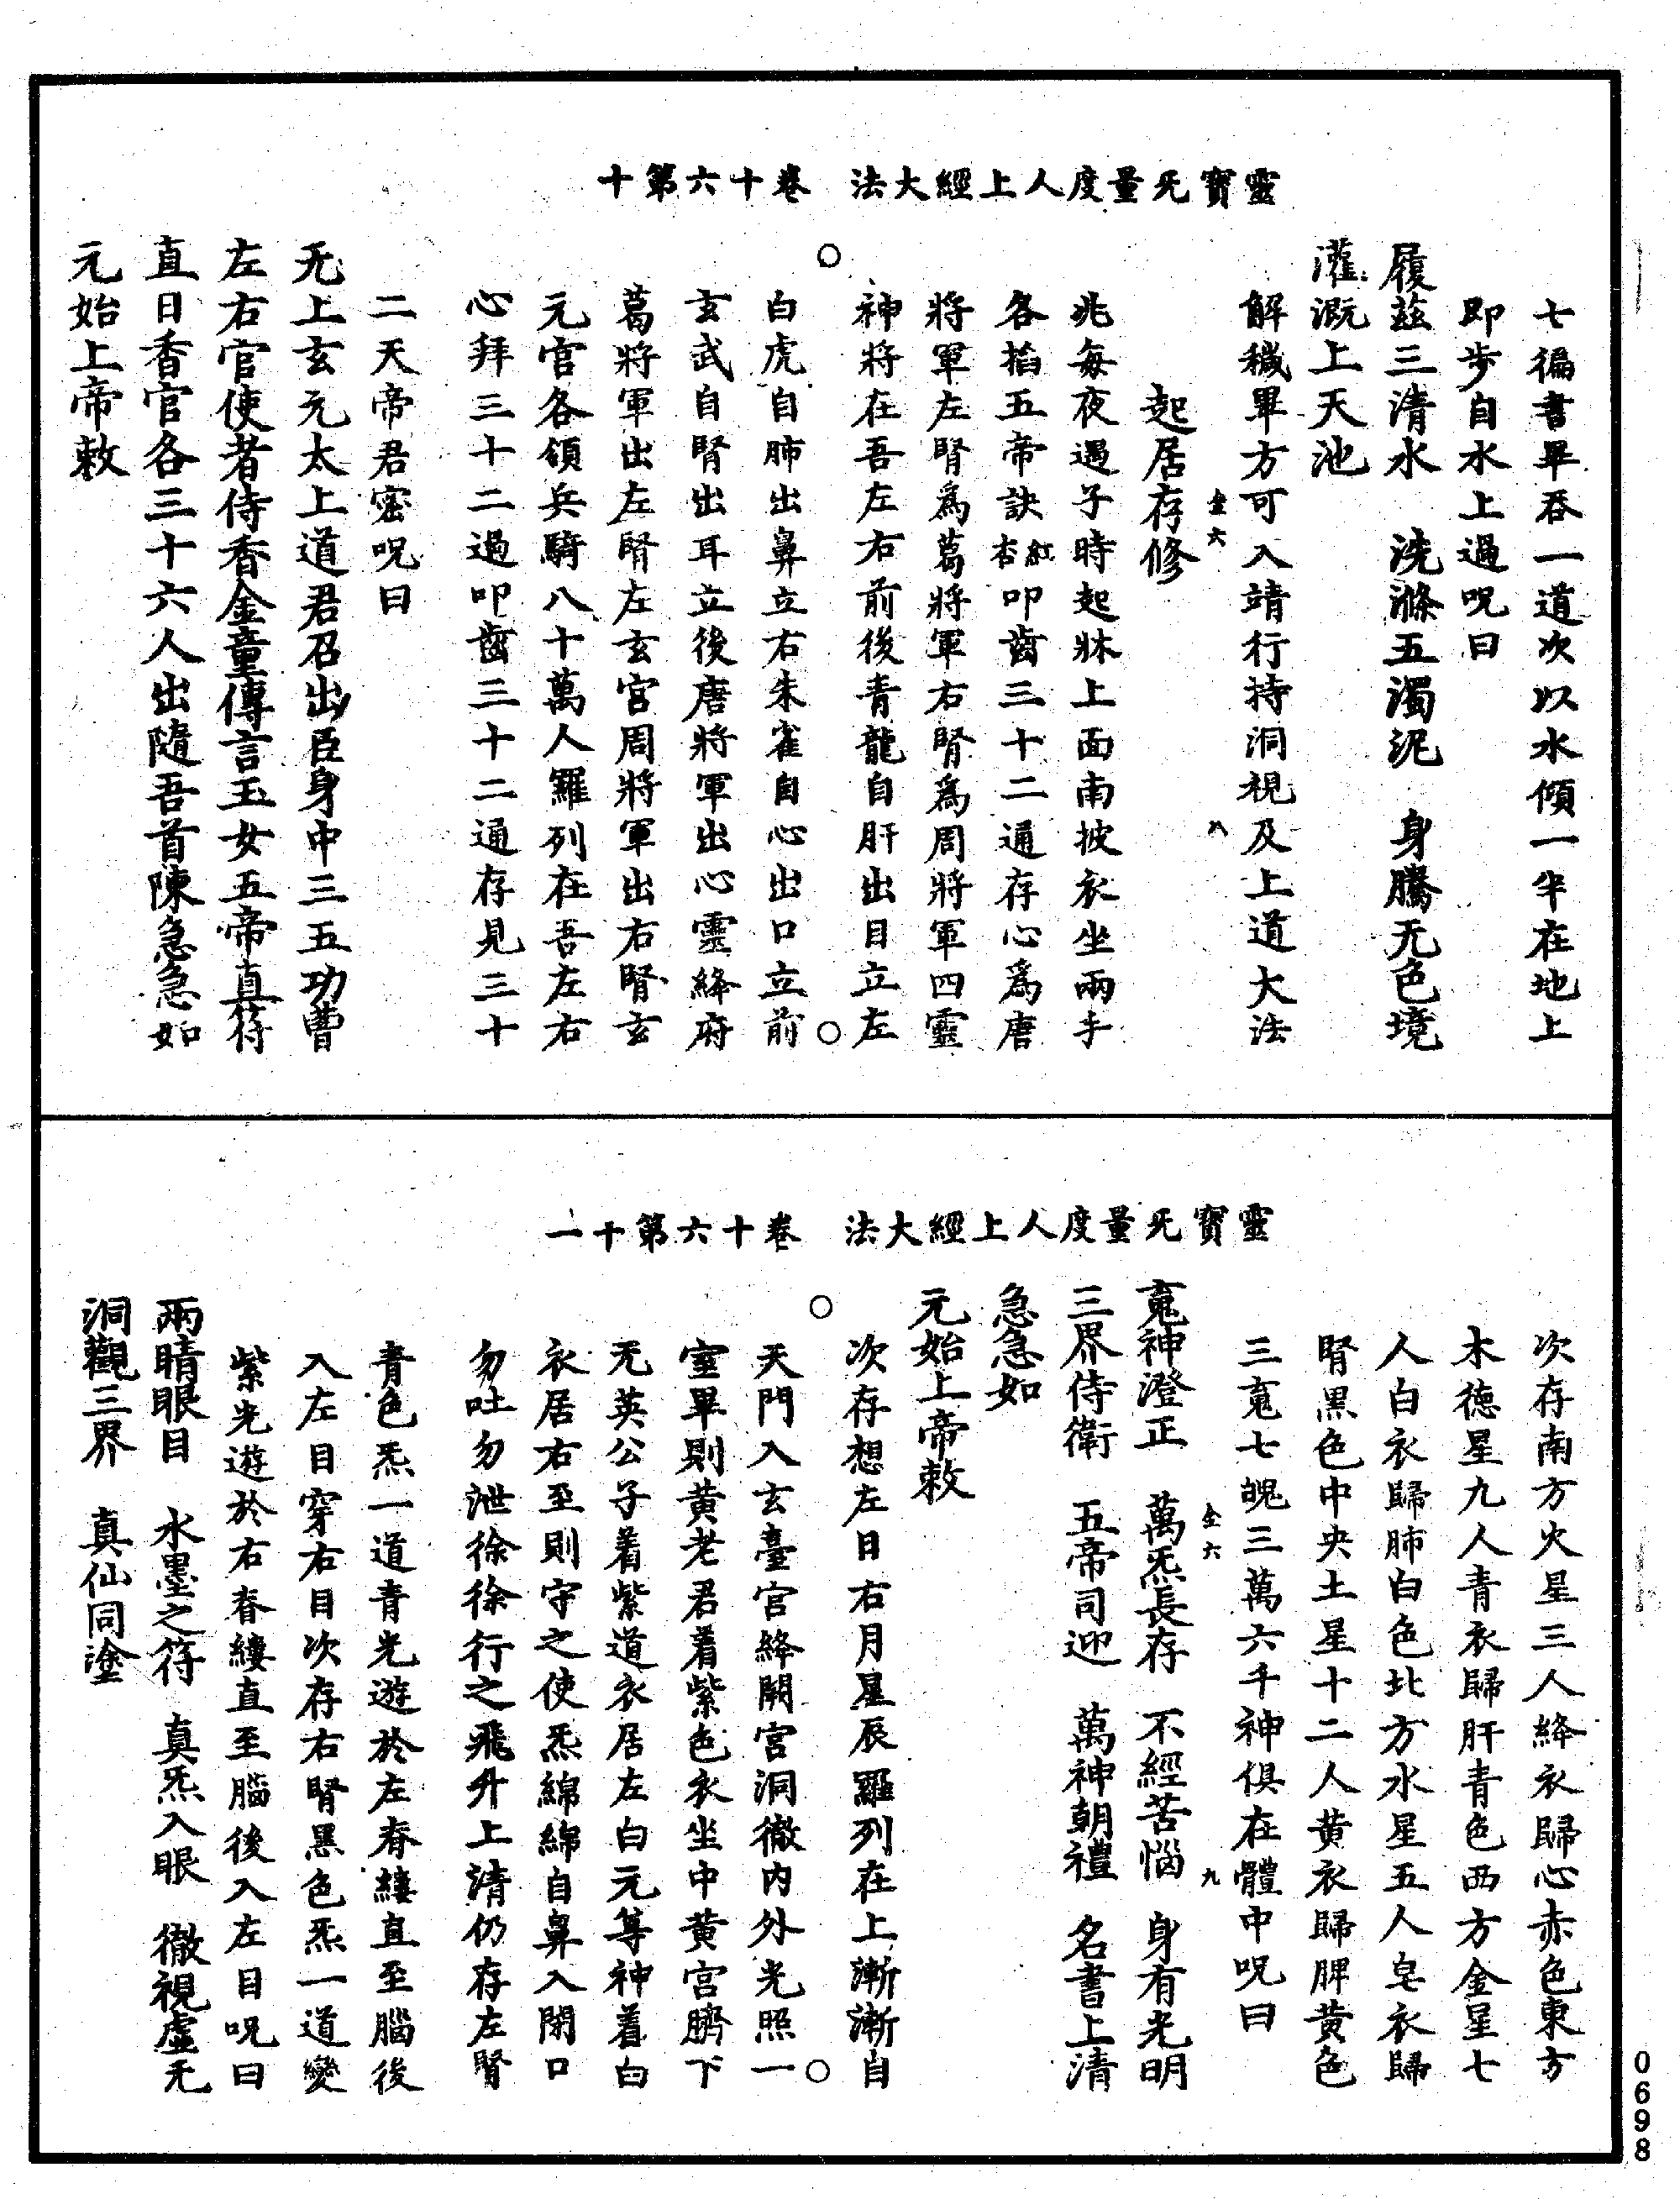 靈寶旡量度人上經大法　卷十六第十
七徧書畢吞一道次以水傾一半在地上
即步自水上過呪曰
履兹三清水　洗滌五濁泥　身騰旡色境
灌溉上天池
解穢畢方可入靖行持洞視及上道大法
全六　八
起居存修
兆每夜遇子時起牀上面南披衣坐兩手
各掐五帝訣杏紅叩齒三十二通存心爲唐
將軍左腎爲葛將軍右腎爲周將軍四靈
神將在吾左右前後青龍自肝出目立左
白虎自肺出鼻立右朱雀自心出口立前
玄武自腎出耳立後唐將軍出心靈絳府
葛將軍出左腎左玄宫周將軍出右腎玄
元宫各領兵騎八十萬人羅列在吾左右
心拜三十二過叩齒三十二通存見三十
二天帝君密呪曰
旡上玄元太上道君召出臣身中三五功曹
左右官使者侍香金童傳言玉女五帝真符
直日香官各三十六人出隨吾首陳急急如
元始上帝敕
靈寶旡量度人上經大法　卷十六第十一
次存南方火星三人絳衣歸心赤色東方
木德星九人青衣歸肝青色西方金星七
人白衣歸肺白色北方水星五人皂衣歸
腎黑色中央土星十二人黄衣歸脾黄色
三䰟七魄三萬六千神俱在體中呪曰
全六　九
䰟神澄正　萬炁長存　不經苦惱　身有光明
三界侍衛　五帝司迎　萬神朝禮　名書上清
急急如
元始上帝敕
次存想左日右月星辰羅列在上漸漸自
天門入玄臺宫絳闕宫洞徹内外光照一
室畢則黄老君着紫色衣坐中黄宫臍下
旡英公子着紫道衣居左白元等神着白
衣居右至則守之使炁綿綿自鼻入閉口
勿吐勿泄徐徐行之飛升上清仍存左腎
青色炁一道青光遊於左脊縷直至腦後
入左目穿右目次存右腎黑色炁一道變
紫光遊於右脊縷直至腦後入左目呪曰
兩睛眼目　水墨之符　真炁入眼　徹視虛旡
洞觀三界　真仙同塗
0698